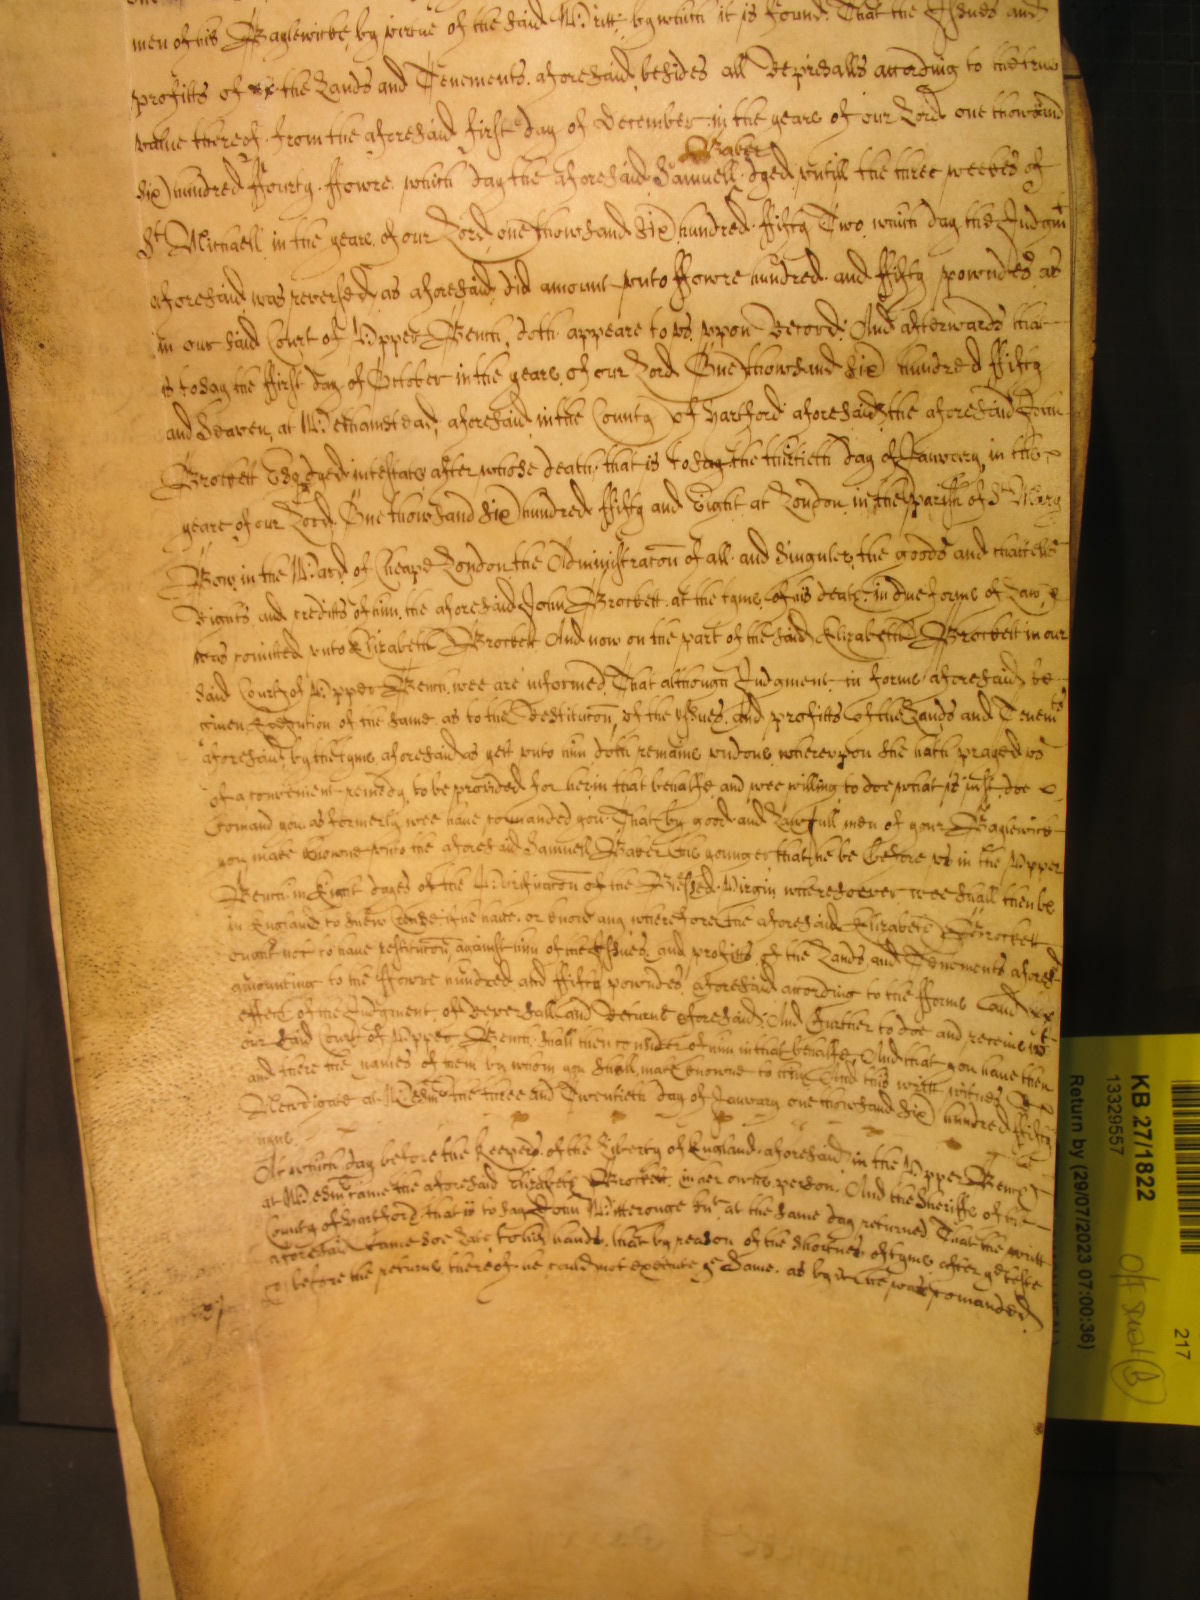 men of his Baylewicke by virtue of the said Writt by which it is found That the Issues and
profitts of the Lands and Tenements aforesaid besides all Reprisalls according to the true
value thereof from the aforesaid first day of December in the yeare of our Lord one thowsand
Baker
six hundred ffourty ffowre which day the aforesaid Samuell dyed untill the three weekes of
St Michaell in the yeare of our Lord one thowsand six hundred ffifty Two which day the Judgmt
aforesaid was reversed as aforesaid did amount unto ffowre hundred and ffifty powndes as
in our said Court of Upper Bench doth appeare to us upon Record And afterwards that
is to say the ffirst day of October in the yeare of our Lord One thowsand six hundred ffifty
and seaven at Wethamstead aforesaid in the County of Hartford aforesaid the aforesaid John
Brockett dyed intestate after whose death that is to say the thirtieth day of January in the
yeare of our Lord One thowsand six hundred ffifty and Eight at London in the parish of St Mary
Bow in the Ward of Cheape London the Administracon of all and singuler the goods and chattells
Rights and creditts of him the aforesaid John Brockett at the tyme of his death in due forme of Law
was comitted unto Elizabeth Brockett And now on the part of the said Elizabeth Brockett in our
said Court of Upper Bench wee are informed That although Judgment in forme aforesaid be
given Execution of the same as to the Restitucon of the Issues and profitts of the Lands and Tenemts
aforesaid by the tyme aforesaid as yett unto him doth remaine undone whereupon she hath prayed us
of a convenient remedy to be provided for her in that behalfe and wee willing to doe what is just doe
Comand you as formerly wee have comanded you That by good and Lawfull men of your Baylewicke
you make knowne unto the aforesaid Samuell Baker the younger that he be before us in the Upper
Bench in Eight dayes of the Purificacon of the Blessed Virgin wheresoever wee shall then be
in England to shew Cause if he have or know any wherefore the aforesaid Elizabeth Brockett
ought not to have restitucon against him of the Issues and profitts of the Lands and Tenements aforesd
amounting to the ffowre hundred and ffifty powndes aforesaid according to the fforme and
effect of the Judgment of Reversall and Returne aforesaid And further to doe and receive wt
our said Court of Upper Bench shall then consider of him in that behalfe And that you have then
and there the names of them by whom you shall make knowne to him And this writt witnes
Newdigate at Westmr the three and Twentieth day of January one thowsand six hundred ffifty
nyne
At which day before the Keepers of the Liberty of England aforesaid in the Upper Bench
at Westmr came the aforesaid Elizabeth Brockett in her owne person And the Sheriffe of the
County of Hartford that is to say John at the same day returned That the writt
aforesaid came soe late to his hands that by reason of the shortnes of tyme after ye teste
before the returne thereof he could not execute ye same as by it he was comanded
KB 27/1822
13329557
Return by (29/07/2023 07:00:36)
217